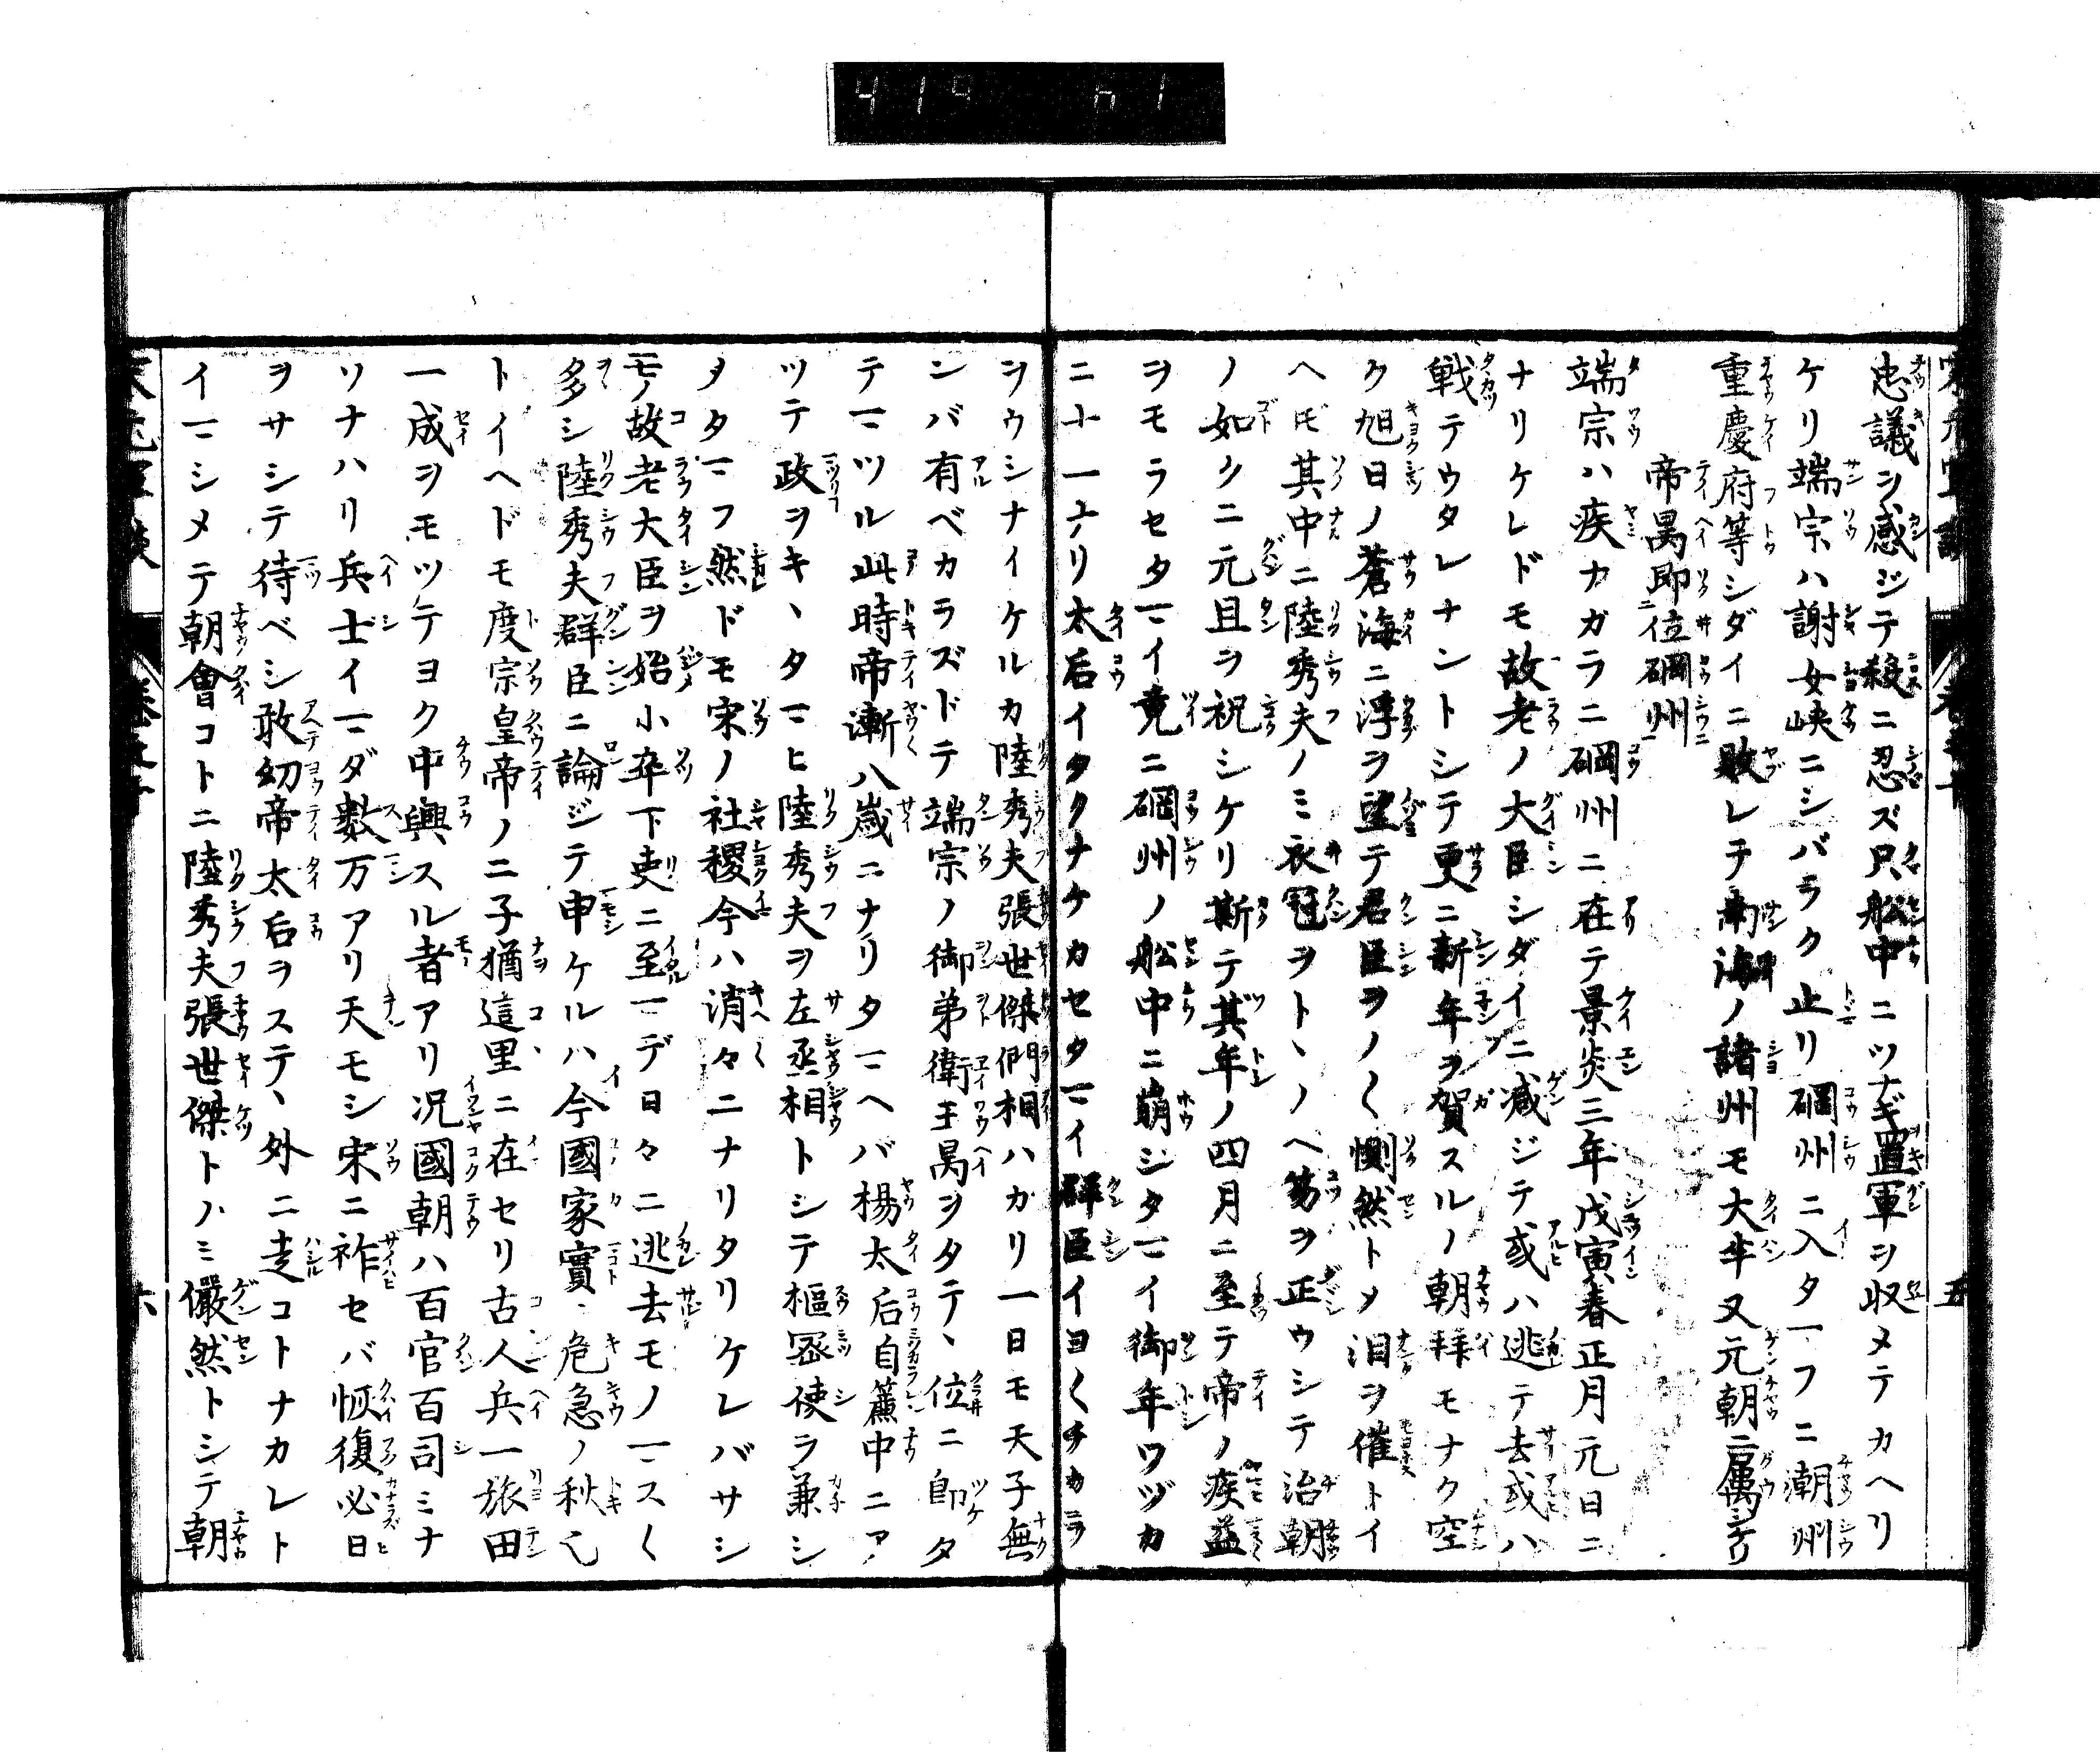 419 h1
忠議ヲ感ジテ殺ニ忍ズ只舩中ニツナギ置軍ヲ収メテカヘリ
ケリ端宗ハ謝女峡ニシバラク止リ碙州ニ入タマフニ潮州
重慶府等シダイニ敗レテ南海ノ諸州モ大半又元朝ニ属シケリ
帝昺即位碙州
端宗ハ疾ナガラニ碙州ニ在テ景炎三年戊寅春正月元日ニ
ナリケレドモ故老ノ大臣シダイニ減ジテ或ハ逃テ去或ハ
戦テウタレナントシテ更ニ新年ヲ賀スルノ朝拝モナク空
ク旭日ノ蒼海ニ浮ヲ望テ君臣ヲノ〱惻然トメ泪ヲ催トイ
ヘ𪜈其中ニ陸秀夫ノミ衣冠ヲトヽノヘ笏ヲ正ウシテ治朝
ノ如クニ元且ヲ祝シケリ斯テ其年ノ四月ニ至テ帝ノ疾益
ヲモラセタマイ竟ニ碙州ノ舩中ニ崩ジタマイ御年ワヅカ
ニ十一ナリ太后イタクナケカセタマイ群臣イヨ〱チカラ
ヲウシナイケルカ陸秀夫張世傑們相ハカリ一日モ天子無
ンバ有ベカラズドテ端宗ノ御弟衛王昺ヲタテヽ位ニ即タ
テマツル此時帝漸八歳ニナリタマヘバ楊太后自簾中ニア
ツテ政ヲキヽタマヒ陸秀夫ヲ左丞相トシテ樞密使ラ兼シ
メタマフ然ドモ宋ノ社稷今ハ消々ニナリタリケレバサシ
モノ故老大臣ヲ始小卒下吏ニ至マデ日々ニ逃去モノマス〱
多シ陸秀夫群臣ニ論ジテ申ケルハ今國家實ニ危急ノ秋也
トイヘドモ度宗皇帝ノ二子猶這里ニ在セリ古人兵一旅田
一成ヲモツテヨク中興スル者アリ况國朝ハ百官百司ミナ
ソナハリ兵士イマダ数万アリ天モシ宋ニ祚セバ恢復必日
ヲサシテ待ベシ敢幼帝太后ヲステヽ外ニ走コトナカレト
イマシメテ朝會コトニ陸秀夫張世傑トノミ儼然トシテ朝